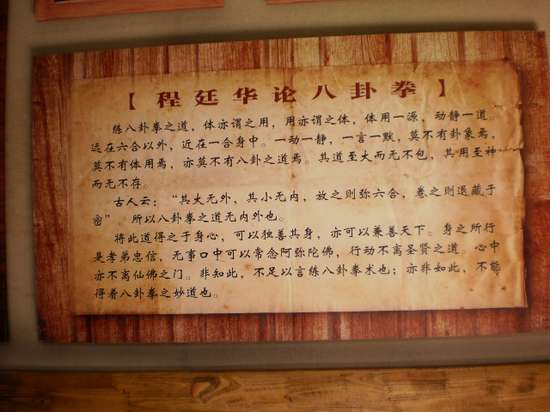 【程廷华论八卦拳】
练八卦拳之道，体亦谓之用，用亦谓之体，体用一源，动静一道。
远在六合以外，近在一合身中。一动一静，一言一默，莫不有卦象焉，
莫不有体用焉，亦莫不有八卦之道焉，其道至大而无不包，其用至神
而无不存。
古人云：“其大无外，其小无内，放之则弥六合，卷之则退藏于
密”。所以八卦拳之道无内外也。
将此道得之于身心，可以独善其身，亦可以兼善天下。身之所行
是孝弟忠信，无事口中可以常念阿弥陀佛，行动不离圣贤之道。心中
亦不离仙佛之门。非知此，不足以言练八卦拳术也；亦非如此，不能
得着八卦拳之妙道也。